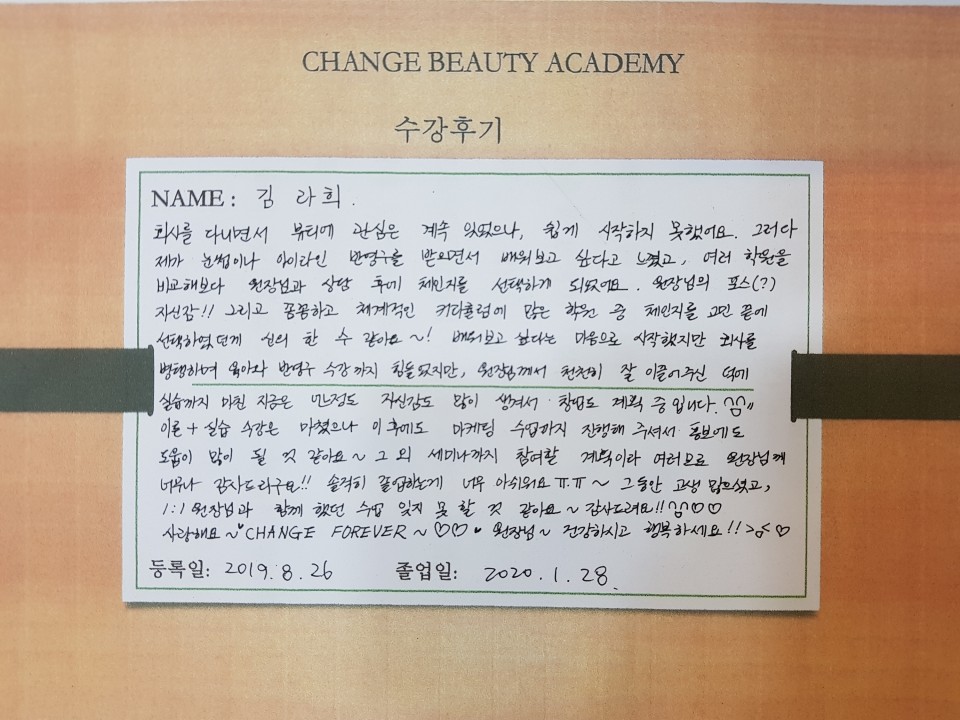 CHANGE BEAUTY ACADEMY
수강후기
NAME : 김 라희.
회사를 다니면서 뷰티에 관심은 계속 있었으나, 쉽게 시작하지 못했어요. 그러다
제가 눈썹이나 아이라인 반영구를 받으면서 배워보고 싶다고 느꼈고, 여러 학원을
비교해보다 원장님과 상담 후에 체인지를 선택하게 되었어요. 원장님의 포스(?)
자신감!! 그리고 꼼꼼하고 체계적인 커리큘럼에 많은 학원 중 체인지를 고민 끝에
선택하였던게 신의 한 수 같아요~! 배워보고 싶다는 마음으로 시작했지만 회사를
병행하며 육아와 반영구 수강까지 힘들었지만, 원장님께서 천천히 잘 이끌어주신 덕에
실습까지 마친 지금은 만족도 자신감도 많이 생겨서 창업도 계획 중입니다. ^^
이론 + 실습 수강은 마쳤으나 이후에도 마케팅 수업까지 진행해 주셔서 홍보에도
도움이 많이 될 것 같아요~ 그 외 세미나까지 참여할 계획이라 여러므로 원장님께
너무나 감사드리구요!! 솔직히 졸업하는게 너무 아쉬워요 ㅠ.ㅠ ~ 그동안 고생 많으셨고,
1:1 원장님과 함께 했던 수업 잊지 못 할 것 같아요~ 감사드려요!! ^^♡♡
사랑해요~♥CHANGE FOREVER~♡♡♥ 원장님~ 건강하시고 행복하세요!! >_< ♡
등록일: 2019. 8. 26 졸업일: 2020. 1. 28.